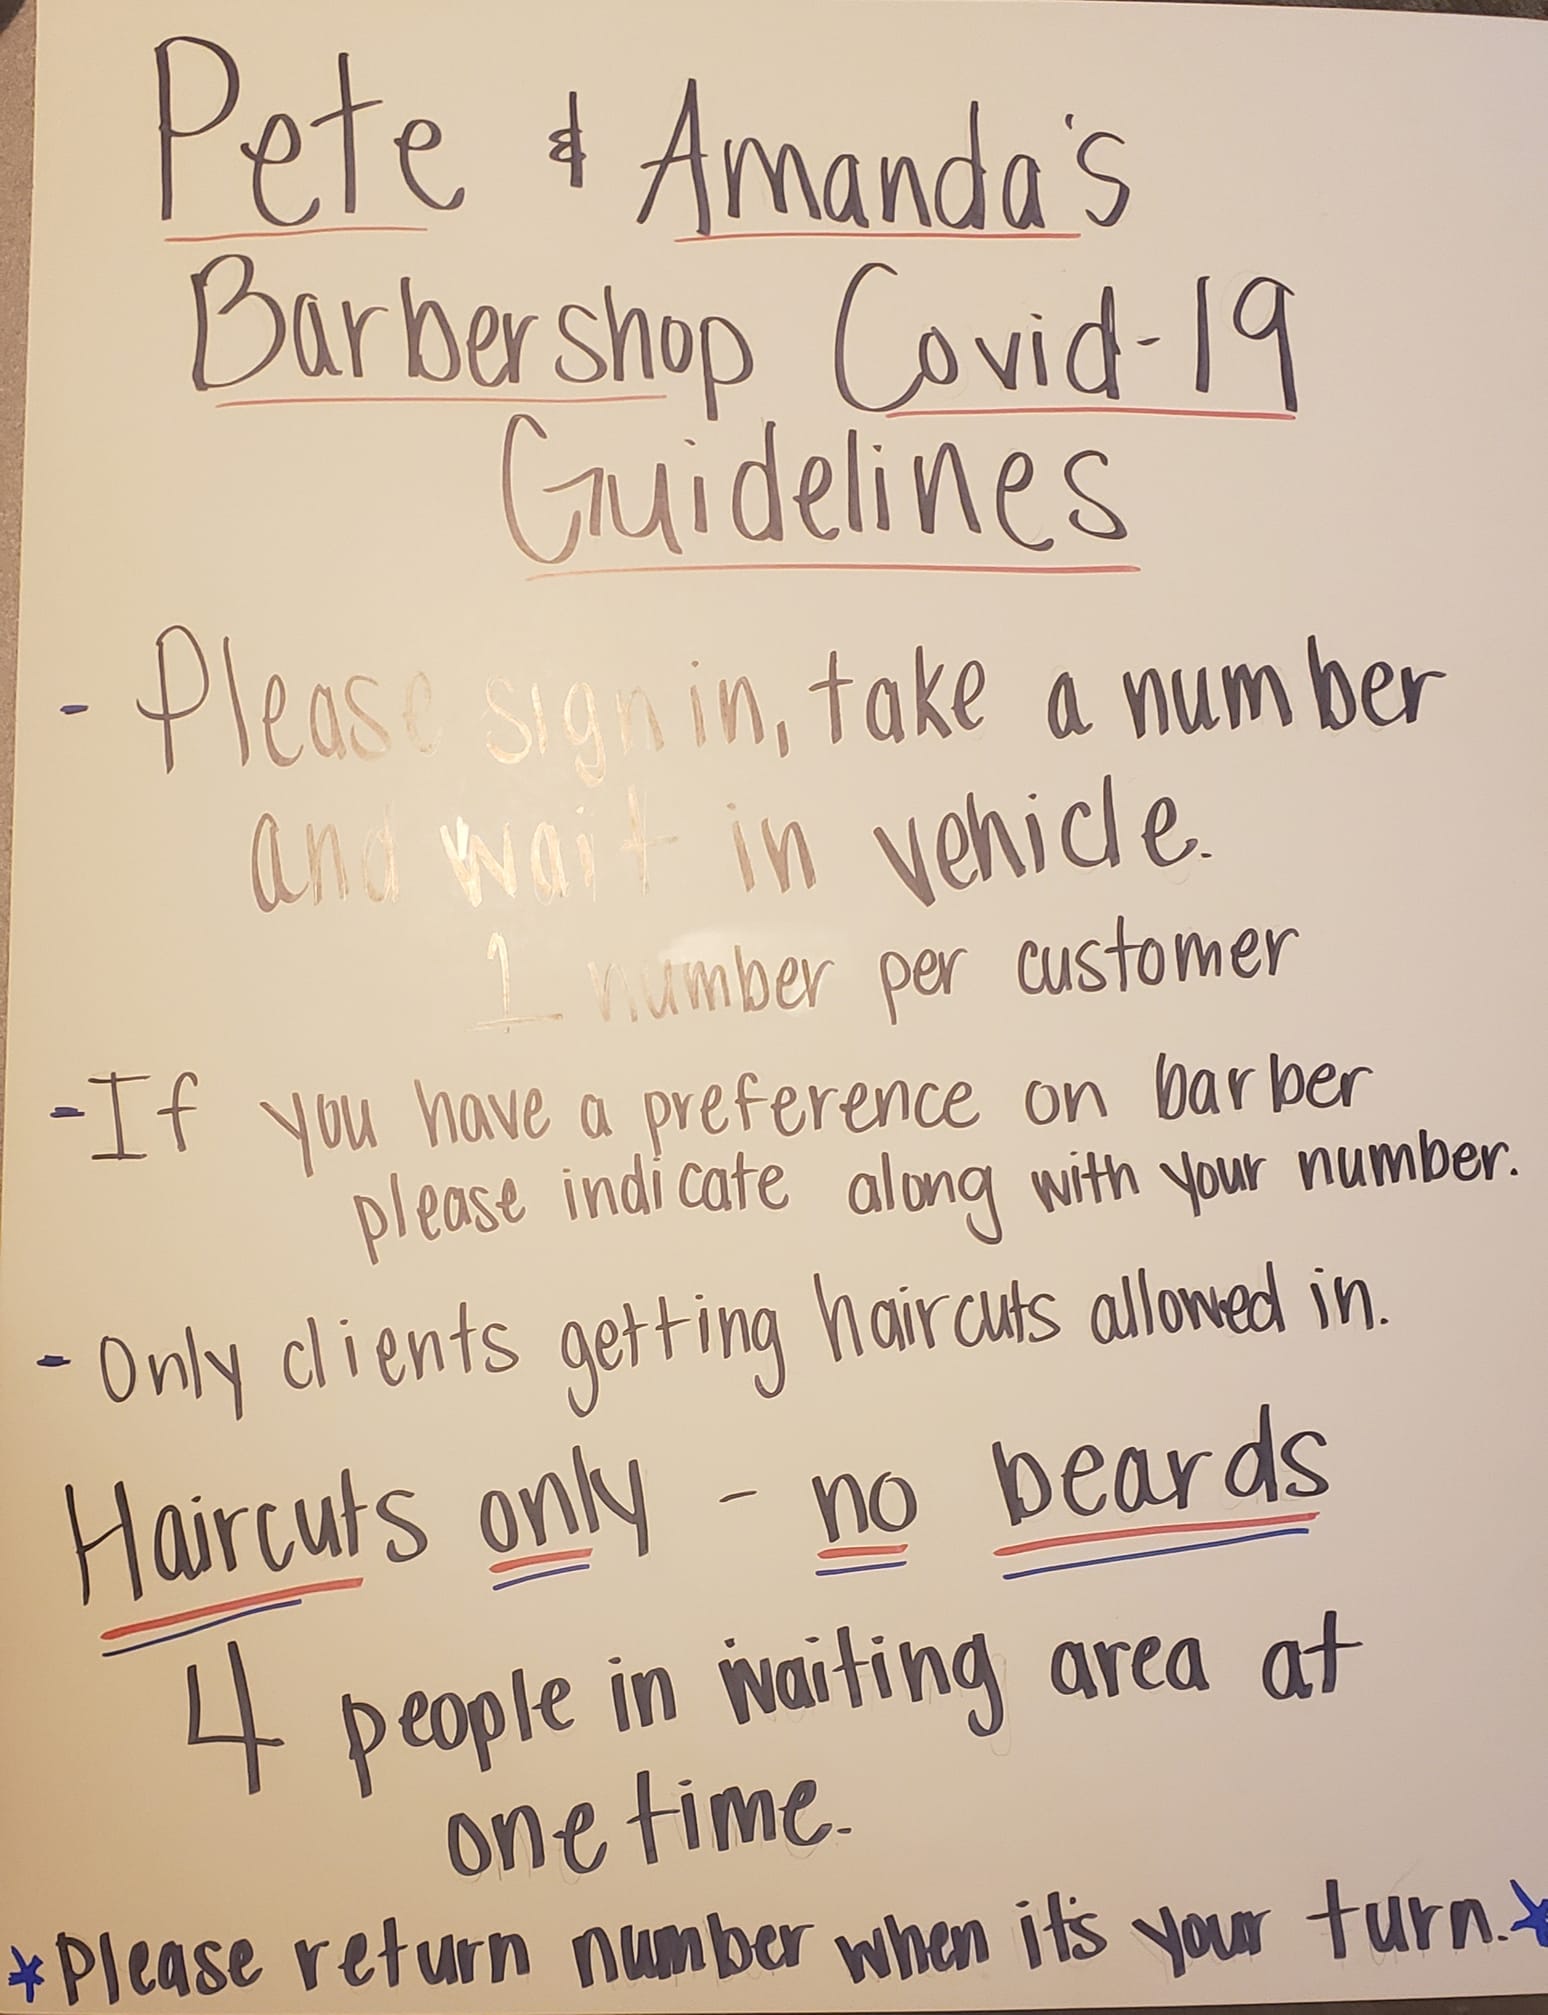 Pete & Amanda's
Barbershop Covid-19
Guidelines
- Please sign in, take a number
and wait in vehicle.
1 number per customer
- If you have a preference on barber
please indicate along with your number.
- Only clients getting haircuts allowed in.
Haircuts only - no beards
4 people in waiting area at
one time.
*Please return number when it's your turn.*